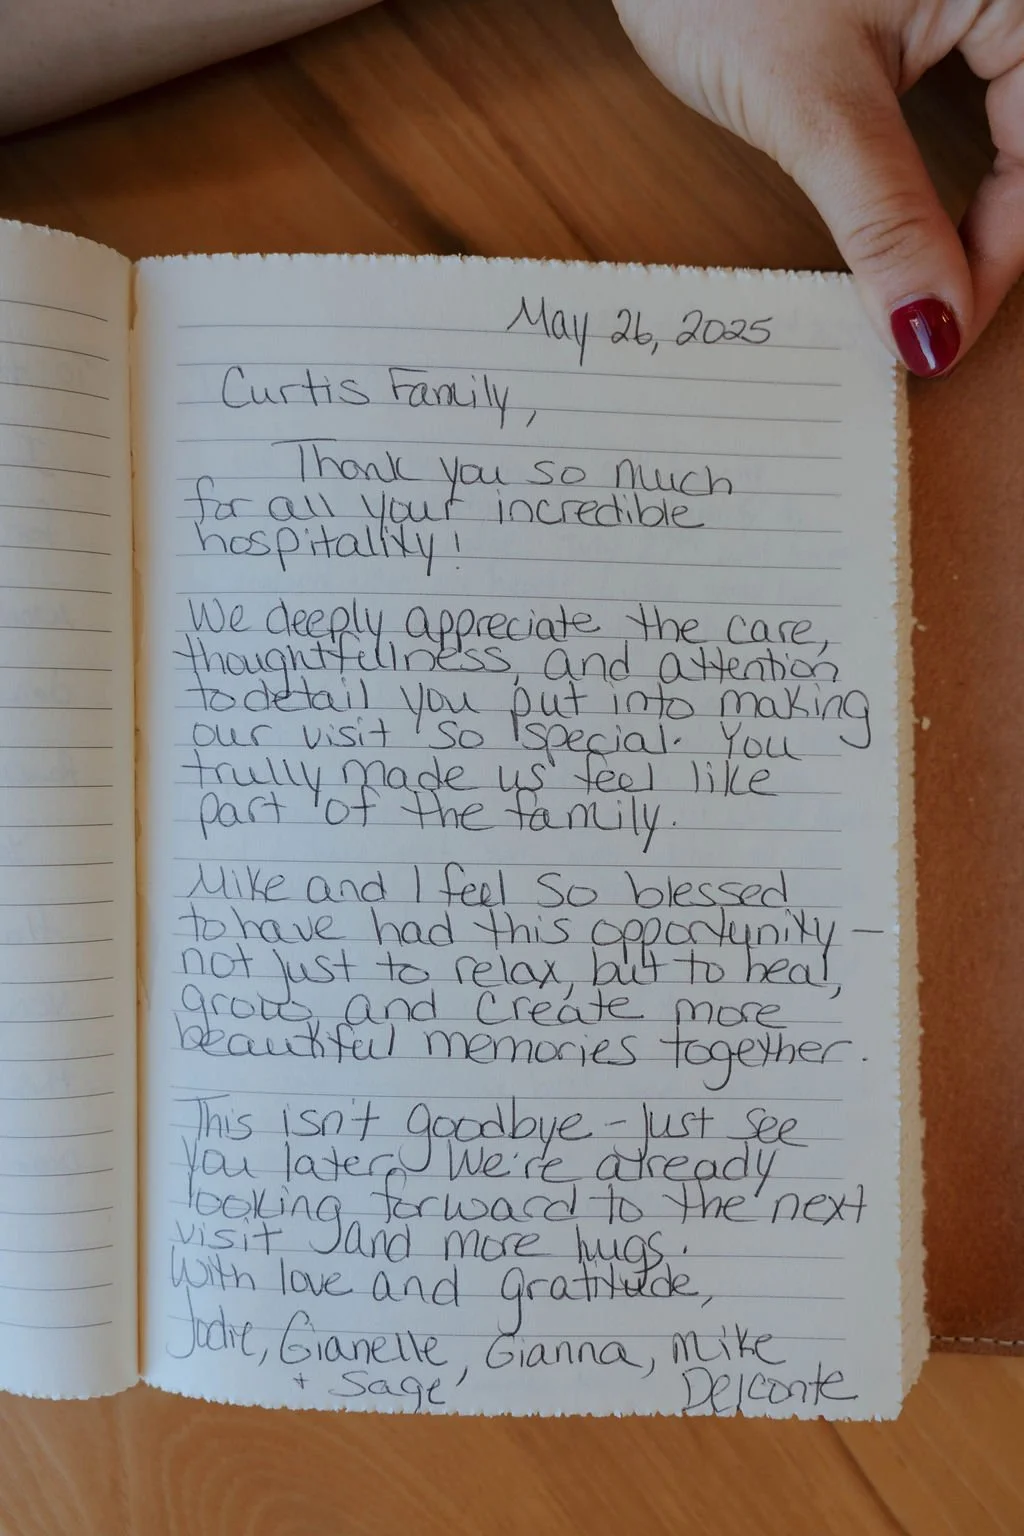 May 26, 2025
Curtis Family,
Thank you so much
for all your incredible
hospitality!
We deeply appreciate the care,
thoughtfullness, and attention
to detail you put into making
our visit so special. You
trully made us feel like
part of the family.
Mike and I feel so blessed
to have had this opportunity —
not just to relax, but to heal,
grow, and create more
beautiful memories together.
This isn't goodbye - just see
you later. We're already
looking forward to the next
visit and more hugs.
With love and gratitude,
Jodie, Gianelle, Gianna, Mike
+ Sage Delconte